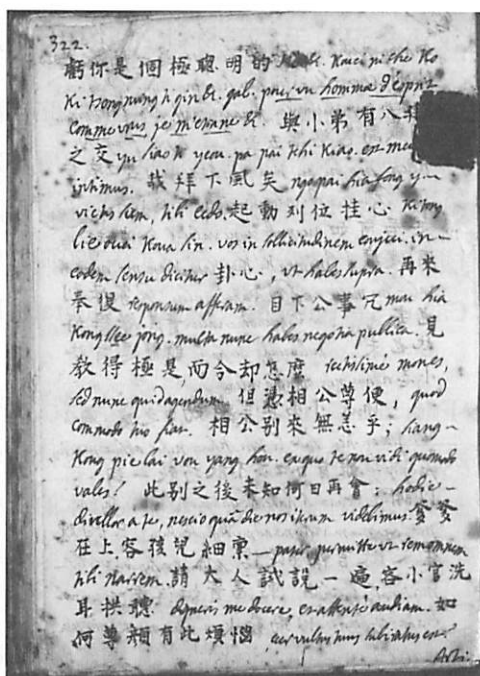 322.
虧你是個極聰明的人 &c. Kuei ni che Ko
Ki tsong ming ti gin &c. gal. pour un homme d'esprit
comme vous je m'etonne &c. 與小弟有八拜
之交 yu siao ti yeou pa pai tchi Kiao. est meus
intimus. 我拜下風矣 ngo pai hia fong y
victus sum, tibi cedo. 起動列位挂心 Ki tong
lie ouei Koua sin. vos in sollicitudinem conjeci. in
eodem sensu dicitur 卦心, ut habes supra. 再來
奉復 responsum afferam. 目下公事冗 mou hia
Kong sse jong. multa nunc habes negotia publica. 見
教得極是, 而今却怎麽 rectissime mones,
sed nunc quid agendum. 但憑相公尊便, quod
commodo tuo fiat. 相公別來無恙乎; siang-
Kong pie lai vou yang hou. ex quo te non vidi quomodo
vales? 此别之後未知何日再會: hodie
divellor a te, nescio quâ die nos iterum videbimus. 爹爹
在上容孩兒細稟 pater permitte ut rem omnem
tibi narrem. 請大人試說一遍, 容小官洗
耳拱聽 digneris me docere, et attente audiam. 如
何尊顔有此煩惱 cur vultus tuus